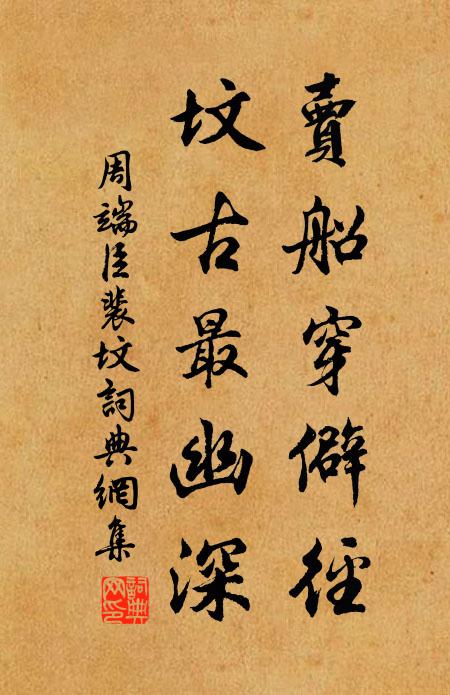 賣船穿僻徑
坟古最幽深
周端臣裴坟詞典網集
詞典
网印